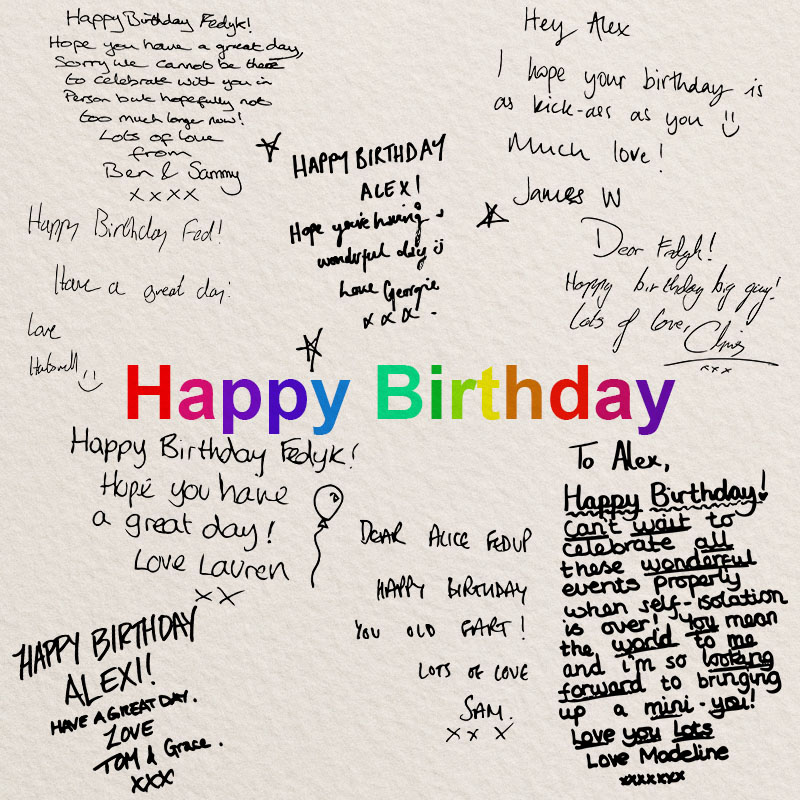 Happy Birthday Fedyk!
Hope you have a great day,
Sorry we cannot be there
to celebrate with you in
Person but hopefully not
too much longer now!
Lots of love
from
Ben & Sammy
xxxx
Hey Alex
I hope your birthday is
as kick-ass as you
Much love!
James W
HAPPY BIRTHDAY
ALEX!
Hope you're having a
wonderful day
Love Georgie
xxx
Happy Birthday Fed!
Have a great day!
Love
Dear Fedyk!
Happy birthday big guy!
Lots of love, Chris
xxx
Happy Birthday
Happy Birthday Fedyk!
Hope you have
a great day!
Love Lauren
xx
DEAR ALICE FEDUP
HAPPY BIRTHDAY
YOU OLD FART!
LOTS OF LOVE
SAM.
xxx
To Alex,
Happy Birthday!
Can't wait to
celebrate all
these wonderful
events properly
when self-isolation
is over! You mean
the world to me
and i'm so looking
forward to bringing
up a mini-you!
Love you lots
Love Madeline
xxxxxxx
HAPPY BIRTHDAY
ALEX!!
HAVE A GREAT DAY.
LOVE
TOM & Grace.
xxx